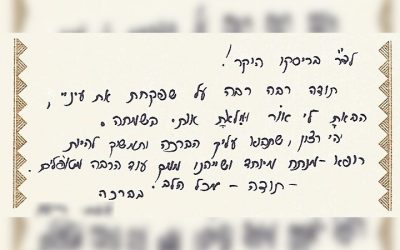 בריסקו היקר!
תודה רבה רבה על שפקחת את עיניי,
הבאת לי אור ומלאת אותי בשמחה.
יהי רצון, שתהא עליך הברכה ותמשיך להיות
רופא-מנתח מיוחד ושייהנו ממך עוד הרבה מטופלים.
- תודה - מכל הלב.
בברכה